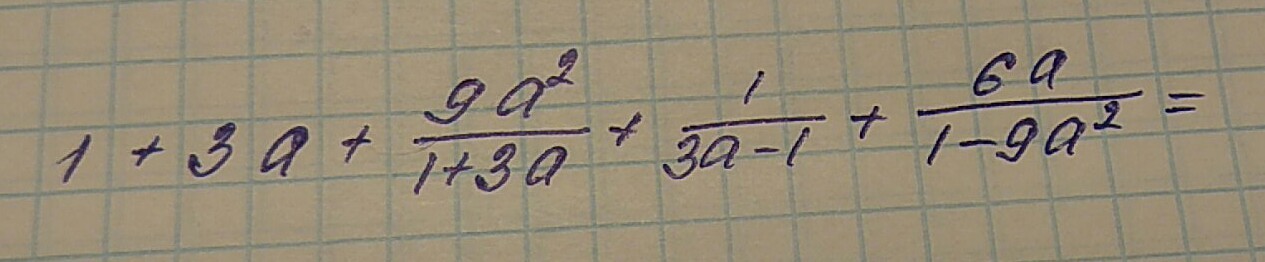 1 + 3a + \frac{9a^2}{1+3a} + \frac{1}{3a-1} + \frac{6a}{1-9a^2} =